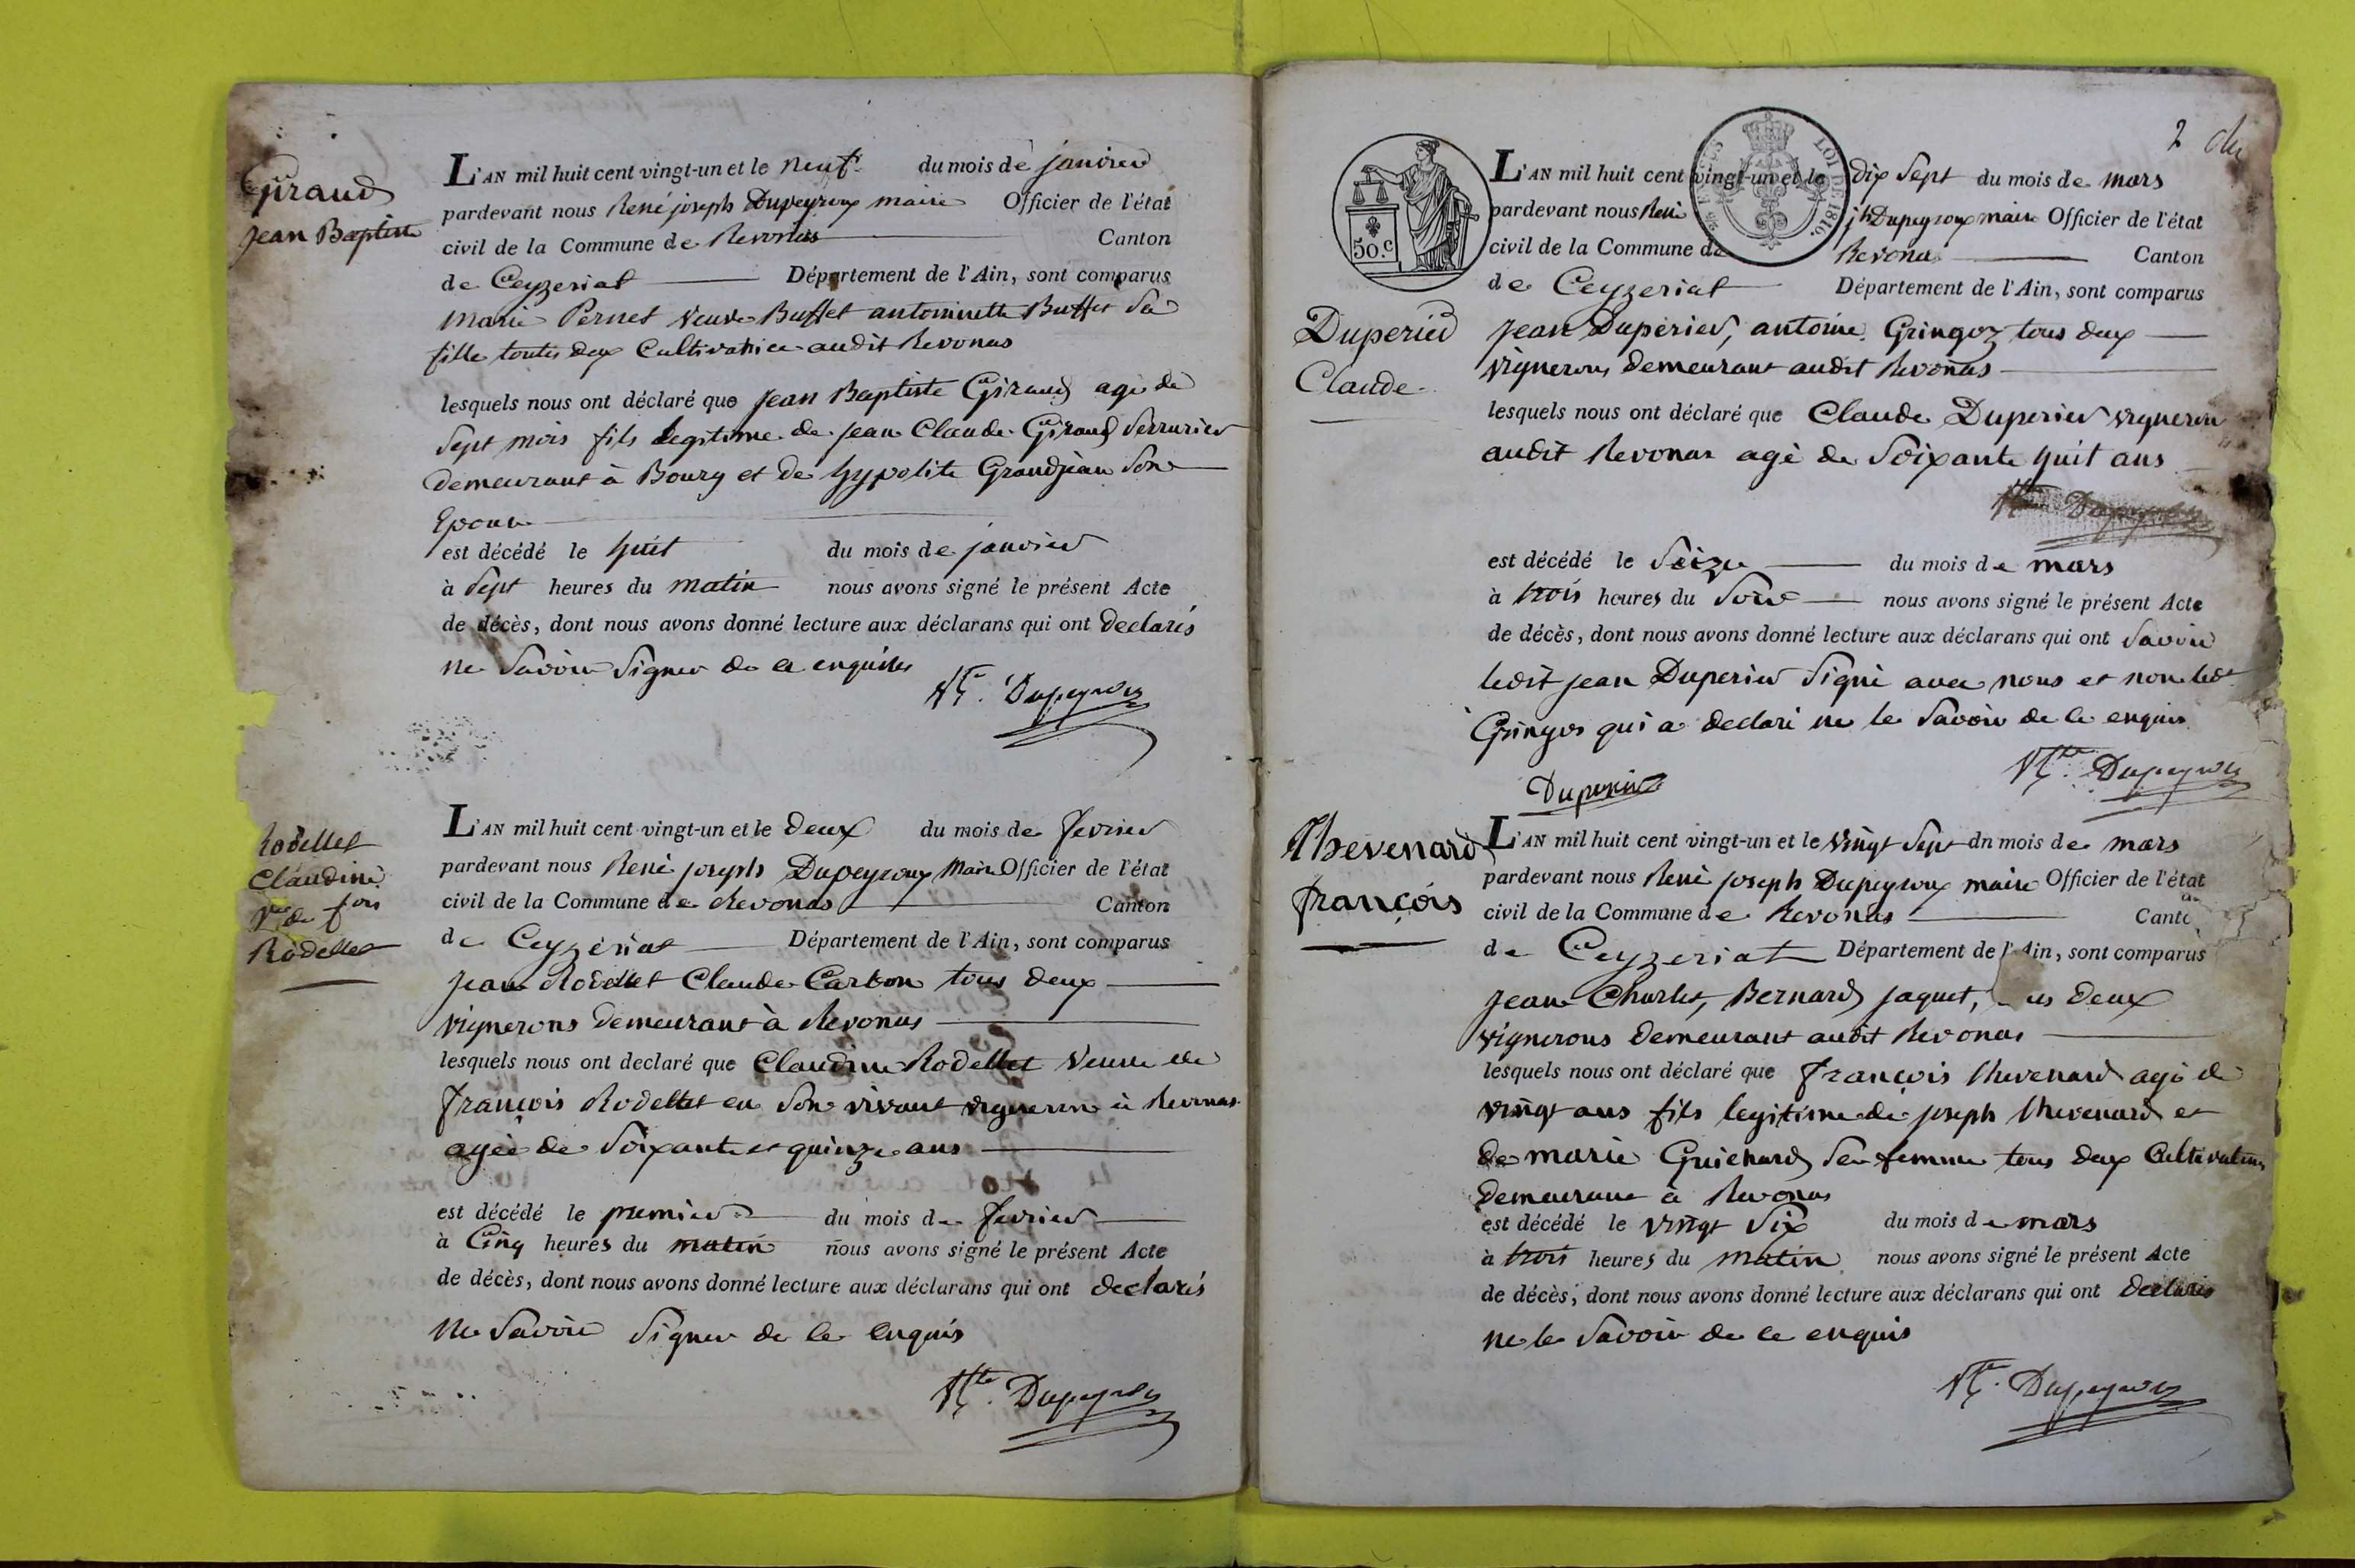 Giraud
Jean Baptiste
L'AN mil huit cent vingt-un et le neuf du mois de janvier
pardevant nous René joseph Dupeyroux maire Officier de l'état
civil de la Commune de Revonas Canton
de Ceyzeriat Département de l'Ain, sont comparus
Marie Pernet veuve Buffet antoinette Buffet Sa
fille toutes deux Cultivatrice audit Revonas
lesquels nous ont déclaré que jean Baptiste Giraud agé de
Sept mois fils legitime de jean Claude Giraud Serrurier
demeurant à Bourg et de hypolite Grandjean Son
Epouse
est décédé le huit du mois de janvier
à Sept heures du matin nous avons signé le présent Acte
de décès, dont nous avons donné lecture aux déclarans qui ont declarés
ne Savoir Signer de ce enquises
Dupeyroux
Rodellet
Claudine
Ve de fois
Rodellet
L'AN mil huit cent vingt-un et le deux du mois de fevrier
pardevant nous René joseph Dupeyroux Maire Officier de l'état
civil de la Commune de Revonas Canton
de Ceyzériat Département de l'Ain, sont comparus
jean Rodellet Claude Carbon tous deux
vignerons demeurant à Revonas
lesquels nous ont declaré que Claudine Rodellet Veuve de
françois Rodellet en Son vivant vigneron à Revonas
agée de Soixante et quinze ans
est décédé le premier du mois de fevrier
à Cinq heures du matin nous avons signé le présent Acte
de décès, dont nous avons donné lecture aux déclarans qui ont declarés
ne Savoir Signer de ce enquis
Dupeyroux
2
50.c
LOI DE 1816.
Duperier
Claude
L'AN mil huit cent vingt-un et le dix Sept du mois de mars
pardevant nous René jh Dupeyroux maire Officier de l'état
civil de la Commune de Revonas Canton
de Ceyzeriat Département de l'Ain, sont comparus
jean Duperier, antoine Gringoz tous deux
vignerons demeurant audit Revonas
lesquels nous ont déclaré que Claude Duperier vigneron
audit Revonas agé de Soixante huit ans
Dupeyroux
est décédé le Seize du mois de mars
à trois heures du Soir nous avons signé le présent Acte
de décès, dont nous avons donné lecture aux déclarans qui ont Savoir
ledit jean Duperier Signé avec nous et non ledt
Gringos qui a declaré ne le Savoir de ce enquis
Dupeyroux
Duperier
Thevenard
françois
L'AN mil huit cent vingt-un et le vingt Sept dn mois de mars
pardevant nous René joseph Dupeyroux maire Officier de l'état
civil de la Commune de Revonas Canto
de Ceyzeriat Département de l'Ain, sont comparus
jean Charles, Bernard jaquet, us deux
vignerons demeurant audit Revonas
lesquels nous ont déclaré que françois thevenard agé de
vingt ans fils legitime de joseph thevenard et
de marie Guichard Sa femme tous deux Cultivateurs
demeurant à Revonas
est décédé le vingt Six du mois de mars
à trois heures du matin nous avons signé le présent Acte
de décès, dont nous avons donné lecture aux déclarans qui ont declarés
ne le Savoir de ce enquis
Dupeyroux